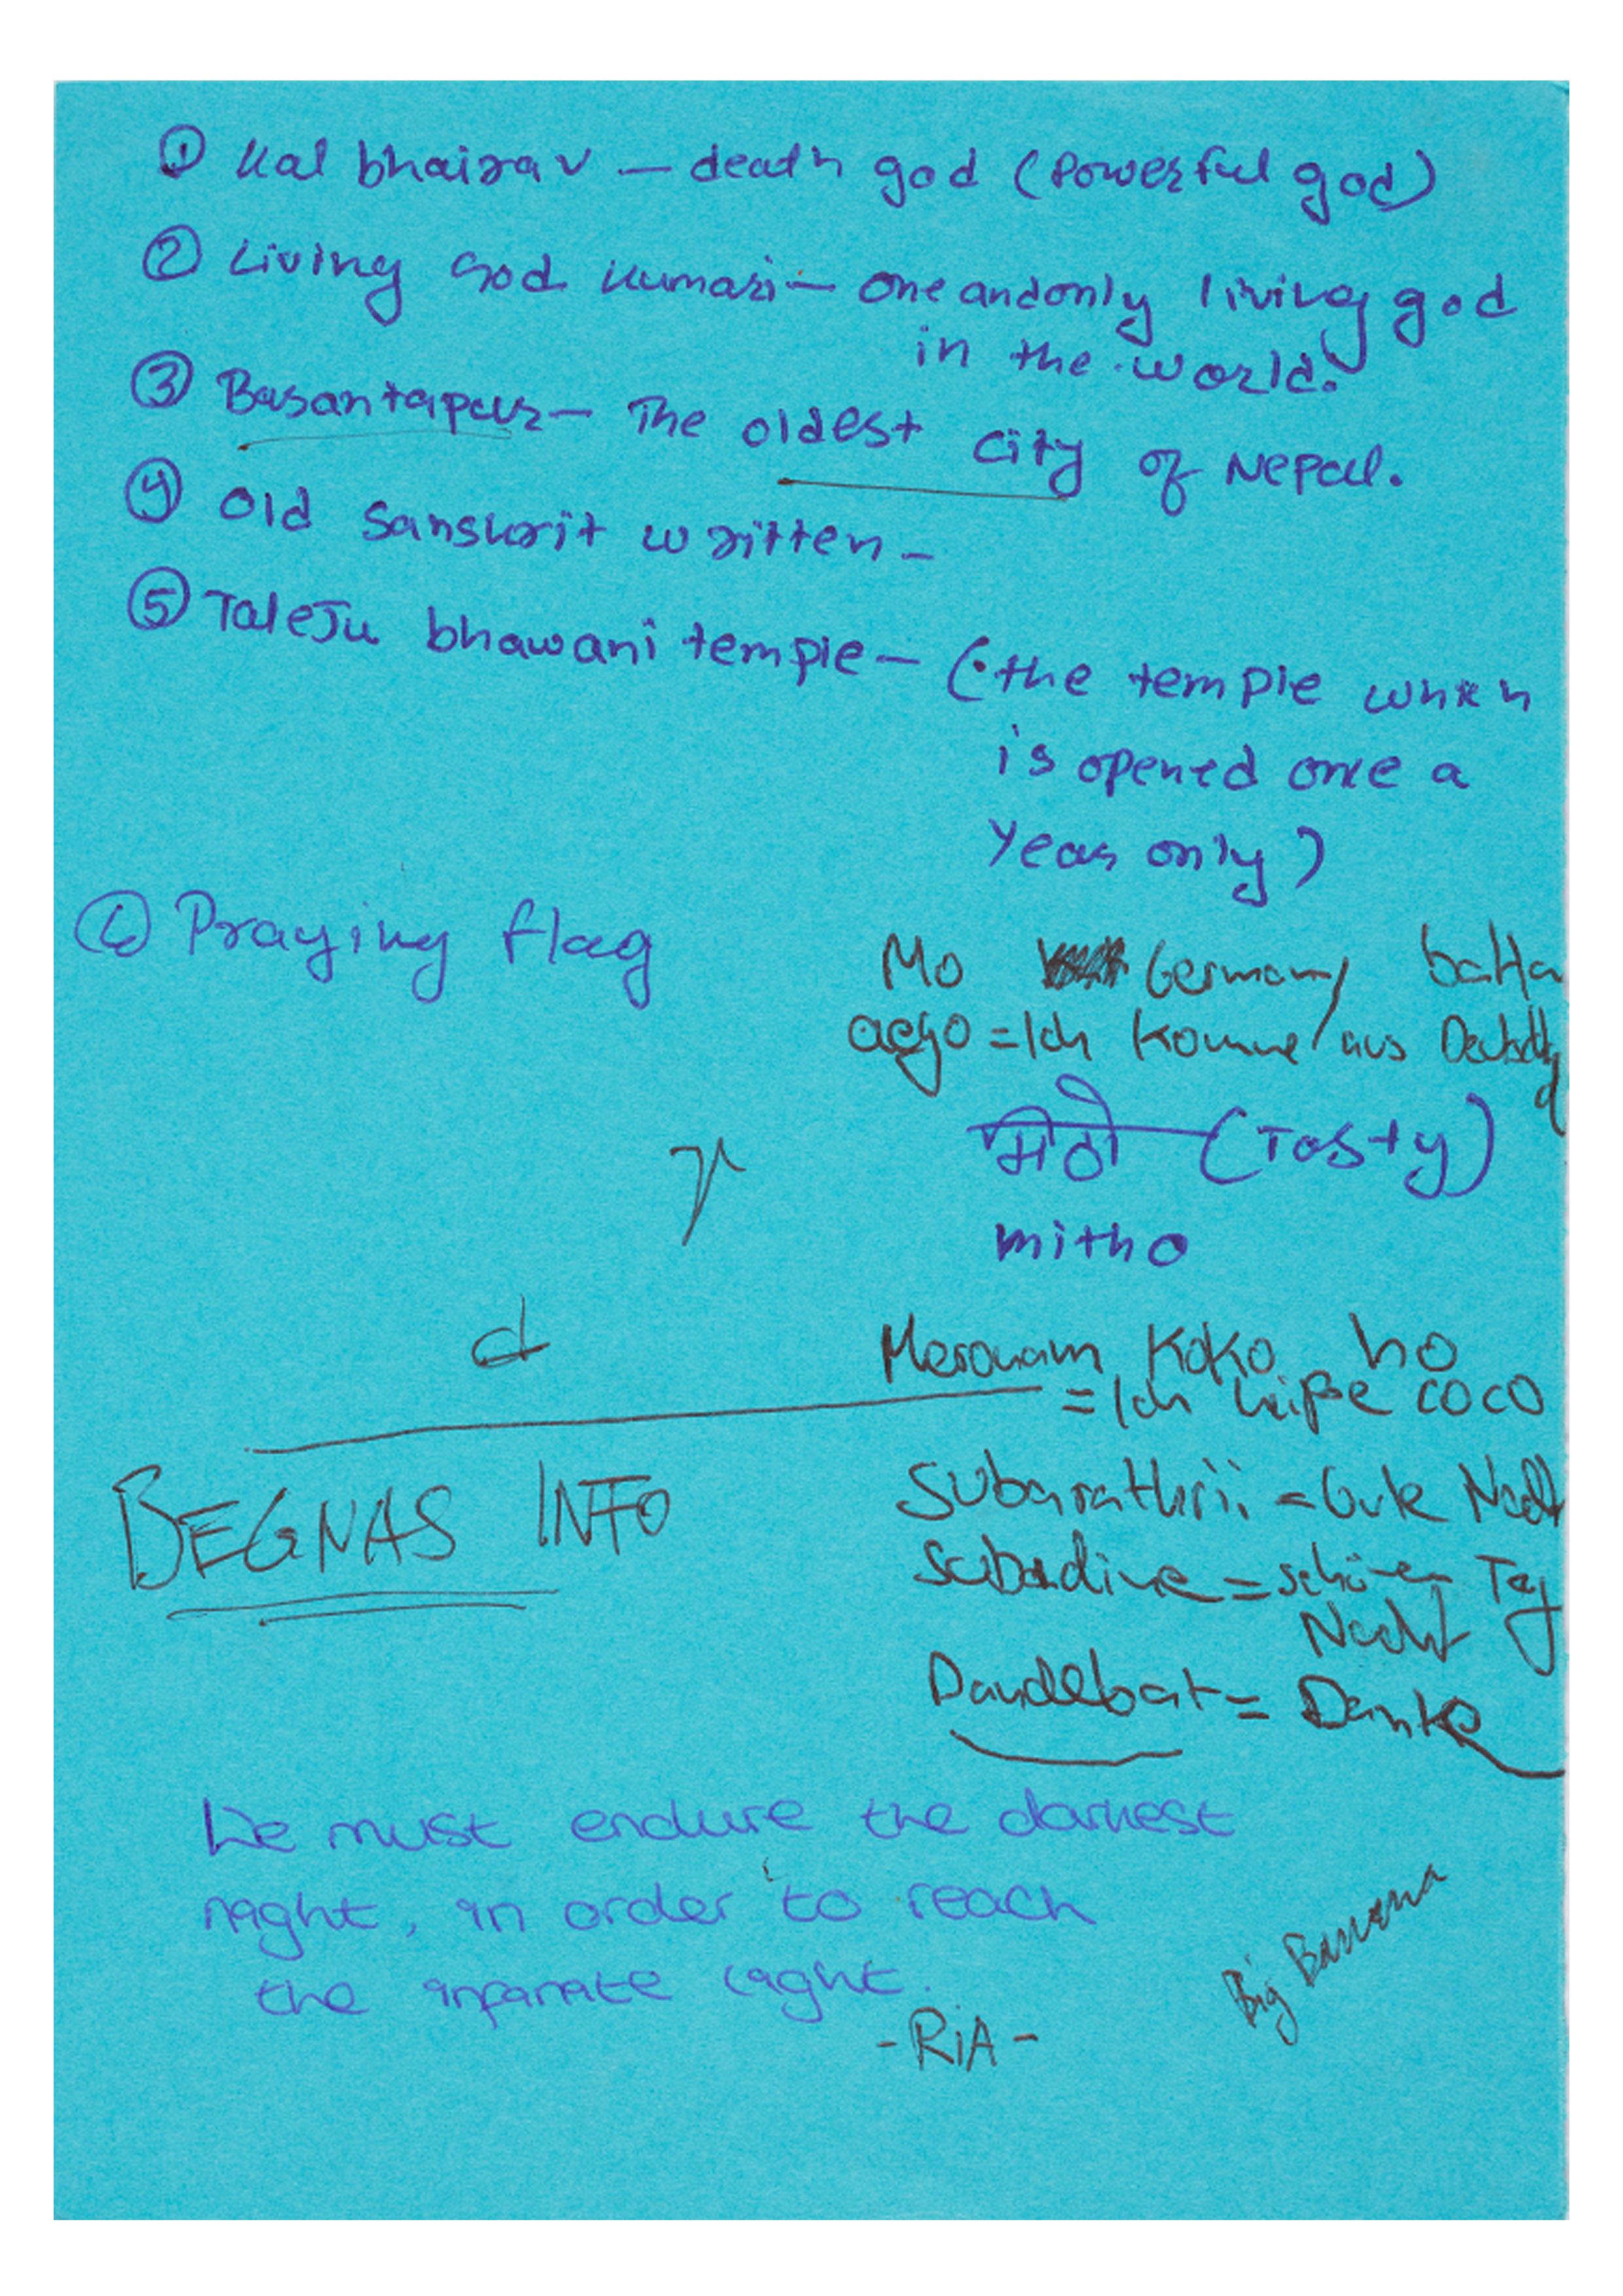 ① Kal bhairav — death god (Powerful god)
② Living God Kumari — One and only living god
in the world.
③ Basantapur — The oldest city of Nepal.
④ Old Sanskrit written —
⑤ TaleJu bhawani temple — (the temple which
is opened once a
Year only)
⑥ Praying flag
Mo Germany batta
aego = Ich komme aus
मिठो (Tasty)
mitho
Meronam Koko ho
= Ich heiße COCO
d
BEGNAS INFO
Subarathrii = Gute Nacht
Subadine = schönen Tag
Nacht
Dandebat = Danke
We must endure the darkest
night, in order to reach
the infinite light.
- RiA -
Big Banana